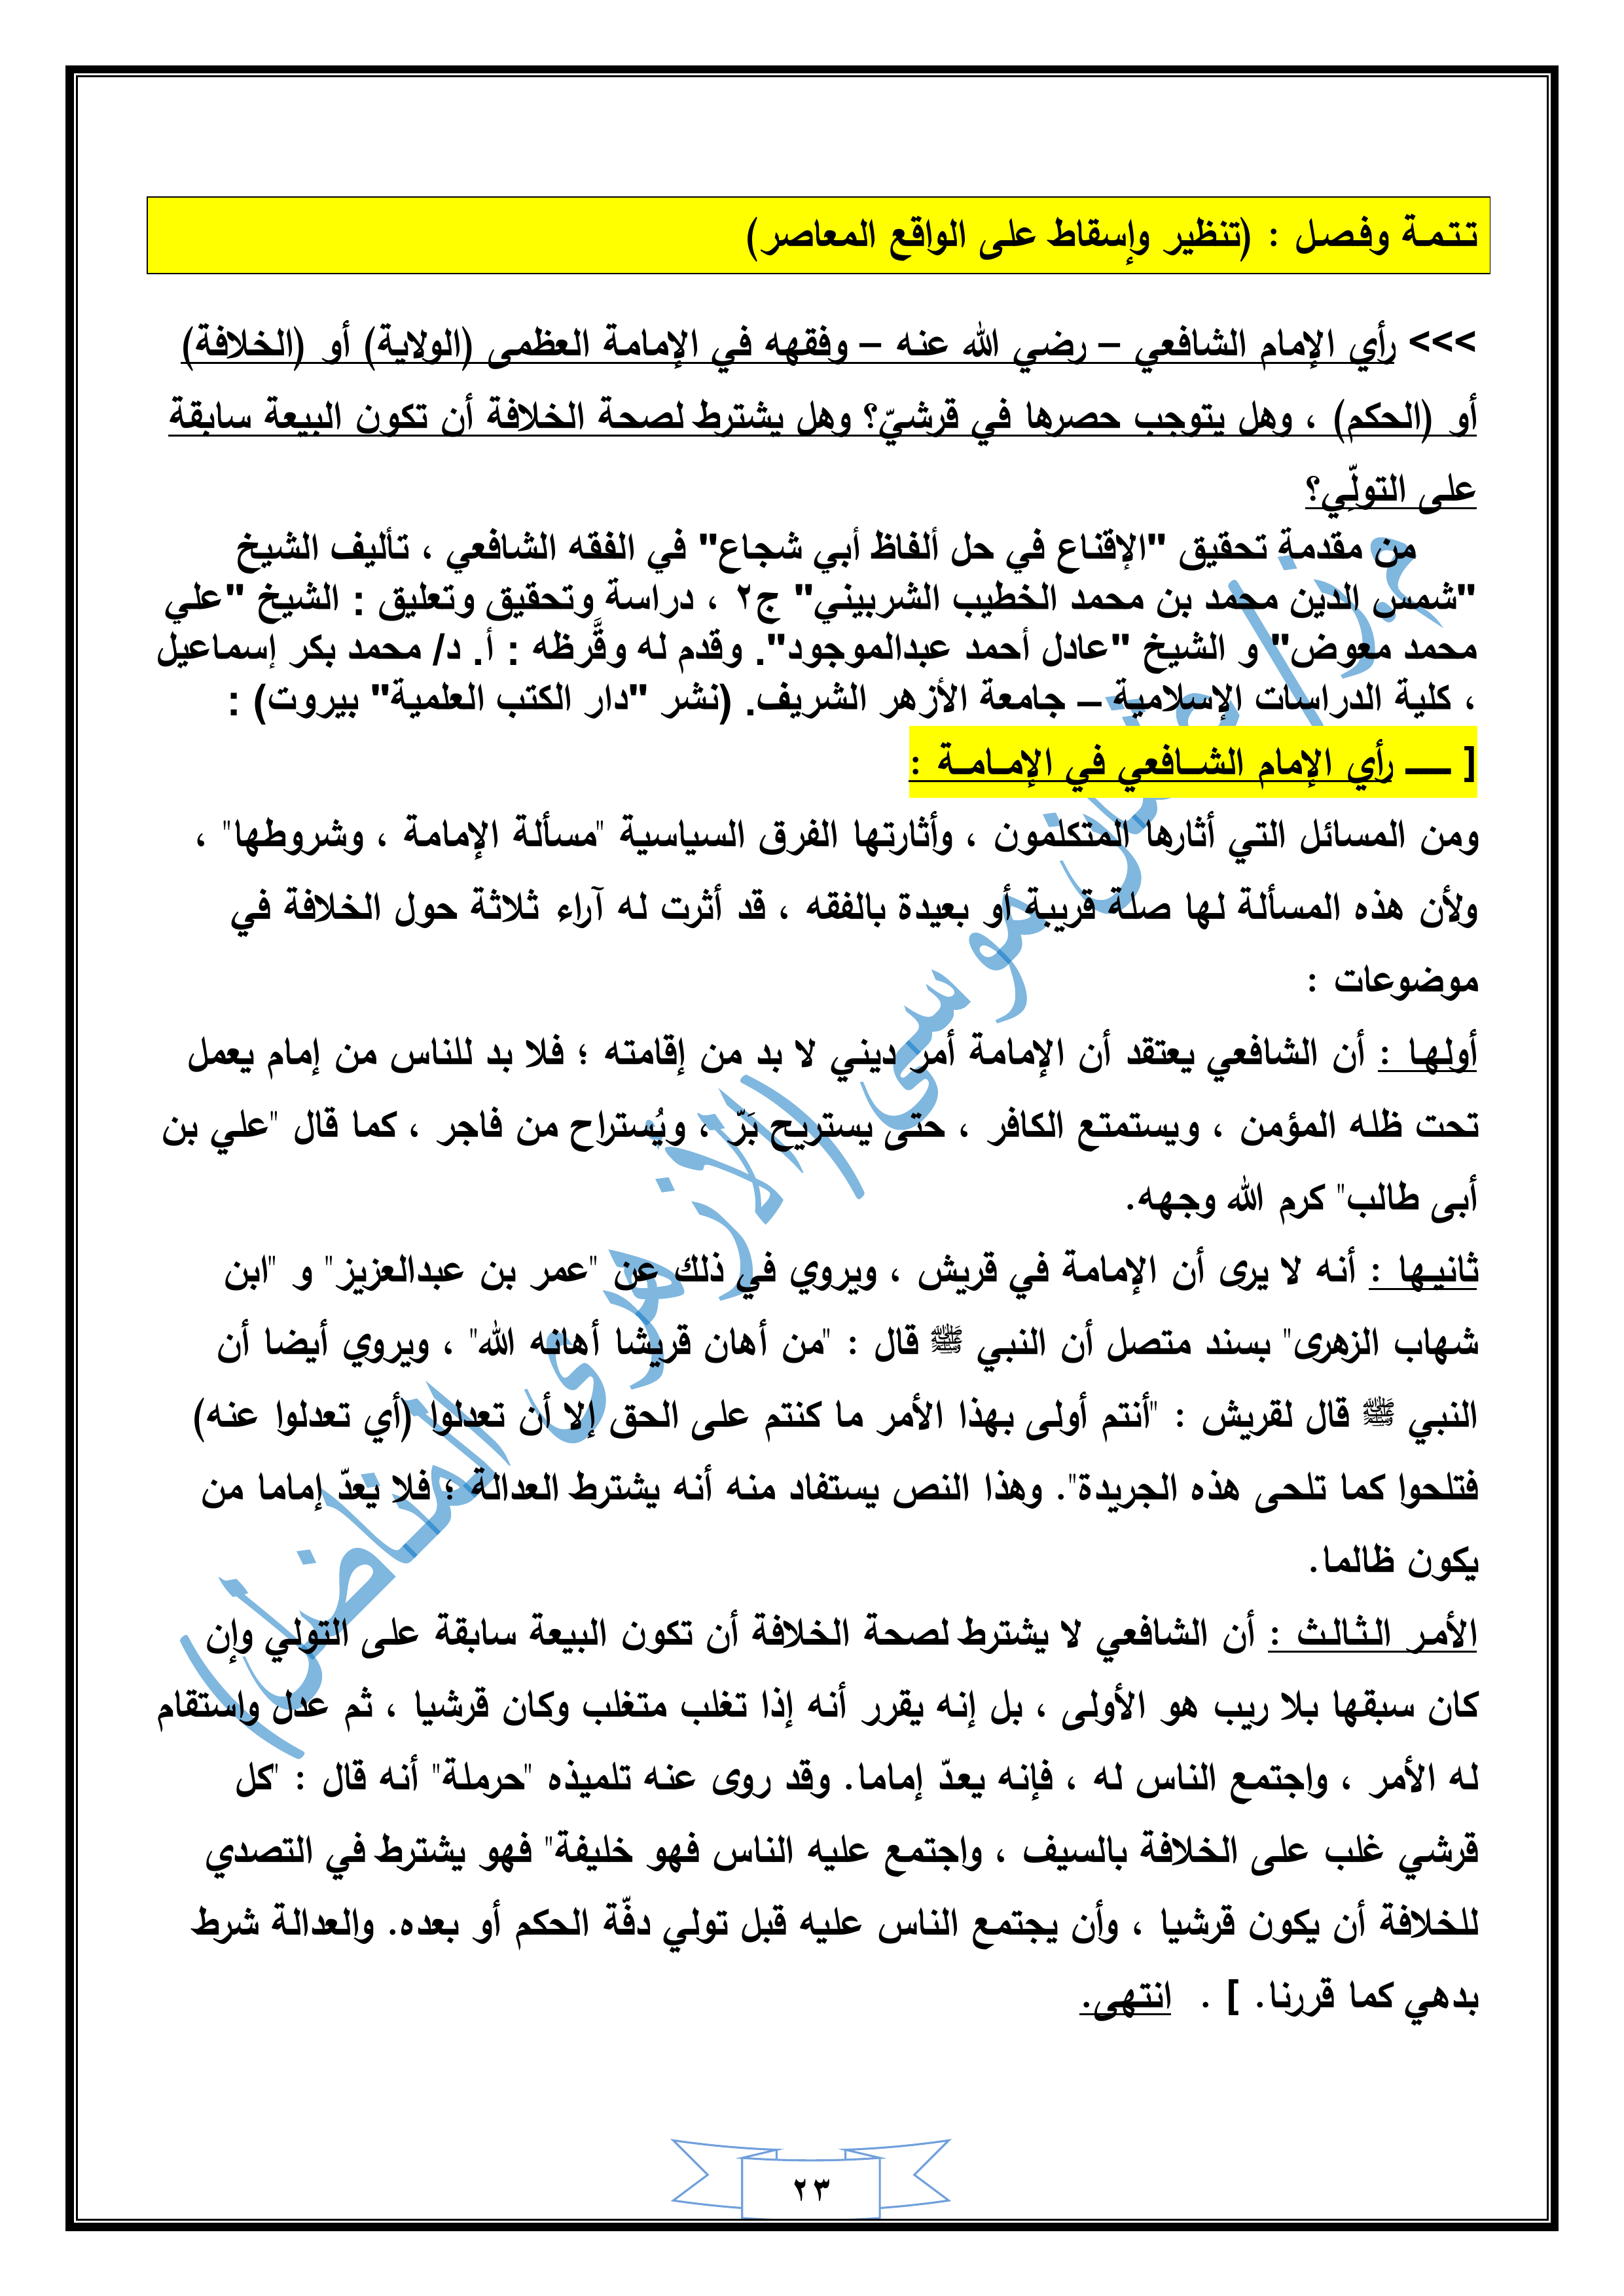 تـتـمـة وفـصـل : (تنظير وإسقاط على الواقع المعاصر)
>>> رأي الإمام الشافعي – رضي الله عنه – وفقهه في الإمامة العظمى (الولاية) أو (الخلافة)
أو (الحكم) ، وهل يتوجب حصرها في قرشيّ؟ وهل يشترط لصحة الخلافة أن تكون البيعة سابقة
على التولِّي؟
من مقدمة تحقيق "الإقناع في حل ألفاظ أبي شجاع" في الفقه الشافعي ، تأليف الشيخ
"شمس الدين محمد بن محمد الخطيب الشربيني" ج٢ ، دراسة وتحقيق وتعليق : الشيخ "علي
محمد معوض" و الشيخ "عادل أحمد عبدالموجود". وقدم له وقَّرظه : أ. د/ محمد بكر إسماعيل
، كلية الدراسات الإسلامية – جامعة الأزهر الشريف. (نشر "دار الكتب العلمية" بيروت) :
[ ــــ رأي الإمام الشــافعي في الإمـامــة :
ومن المسائل التي أثارها المتكلمون ، وأثارتها الفرق السياسية "مسألة الإمامة ، وشروطها" ،
ولأن هذه المسألة لها صلة قريبة أو بعيدة بالفقه ، قد أثرت له آراء ثلاثة حول الخلافة في
موضوعات :
أولـهـا : أن الشافعي يعتقد أن الإمامة أمر ديني لا بد من إقامته ؛ فلا بد للناس من إمام يعمل
تحت ظله المؤمن ، ويستمتع الكافر ، حتى يستريح بَرّ ، ويُستراح من فاجر ، كما قال "علي بن
أبى طالب" كرم الله وجهه.
ثانيـها : أنه لا يرى أن الإمامة في قريش ، ويروي في ذلك عن "عمر بن عبدالعزيز" و "ابن
شهاب الزهرى" بسند متصل أن النبي ﷺ قال : "من أهان قريشا أهانه الله" ، ويروي أيضا أن
النبي ﷺ قال لقريش : "أنتم أولى بهذا الأمر ما كنتم على الحق إلا أن تعدلوا (أي تعدلوا عنه)
فتلحوا كما تلحى هذه الجريدة". وهذا النص يستفاد منه أنه يشترط العدالة ؛ فلا يعدّ إماما من
يكون ظالما.
الأمـر الـثـالـث : أن الشافعي لا يشترط لصحة الخلافة أن تكون البيعة سابقة على التولي وإن
كان سبقها بلا ريب هو الأولى ، بل إنه يقرر أنه إذا تغلب متغلب وكان قرشيا ، ثم عدل واستقام
له الأمر ، واجتمع الناس له ، فإنه يعدّ إماما. وقد روى عنه تلميذه "حرملة" أنه قال : "كل
قرشي غلب على الخلافة بالسيف ، واجتمع عليه الناس فهو خليفة" فهو يشترط في التصدي
للخلافة أن يكون قرشيا ، وأن يجتمع الناس عليه قبل تولي دفّة الحكم أو بعده. والعدالة شرط
بدهي كما قررنا. ] . انتهى.
موسى (الأزهرى المناضل)
٢٣